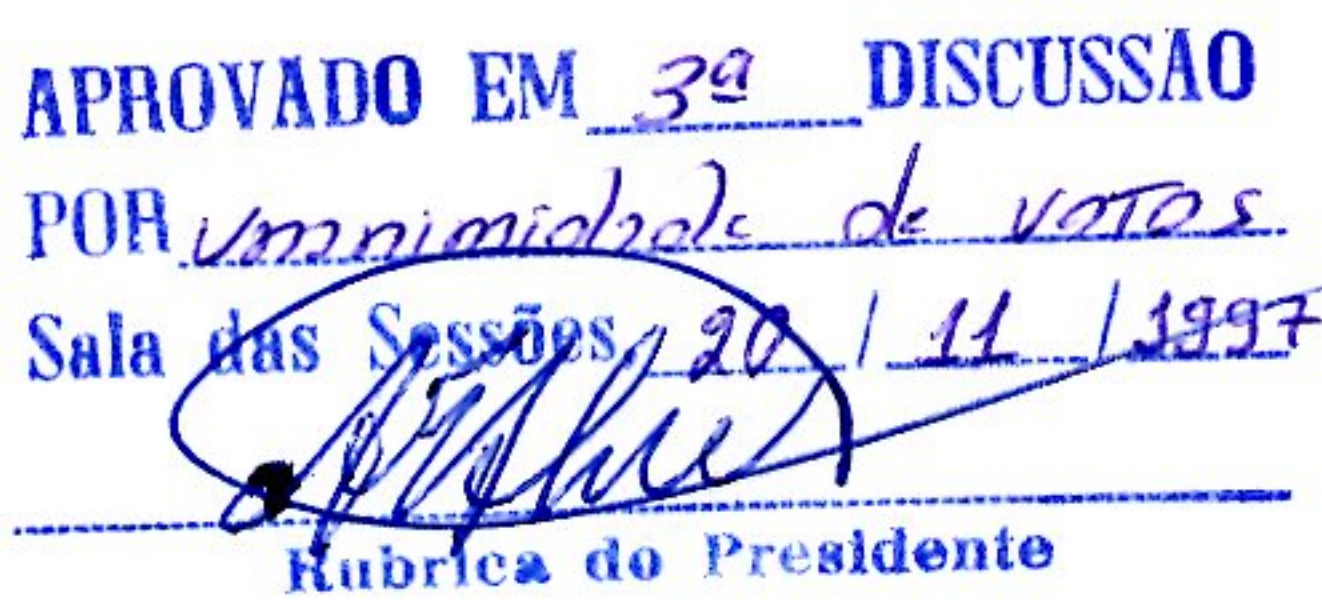 APROVADO EM 3ª DISCUSSÃO
POR unanimidade de votos
Sala das Sessões, 20 / 11 / 1997
Rubrica do Presidente